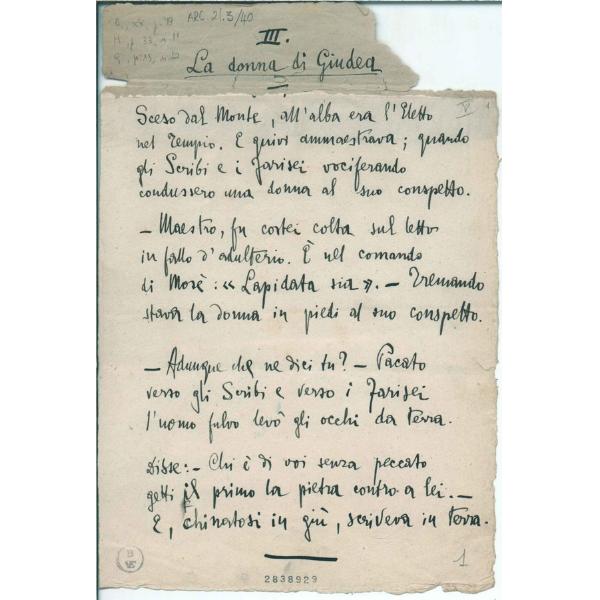 ARC. 21.3/40
III.
La donna di Giudea
V
Sceso dal Monte, all'alba era l'Eletto
nel Tempio. E quivi ammaestrava; quando
gli Scribi e i Farisei vociferando
condussero una donna al suo conspetto.
— Maestro, fu costei colta sul letto
in fallo d'adulterio. È nel comando
di Mosè: «Lapidata sia». — Tremando
stava la donna in piedi al suo conspetto.
— Adunque che ne dici tu? — Pacato
verso gli Scribi e verso i Farisei
l'uomo fulvo levò gli occhi da terra.
Disse: — Chi è di voi senza peccato
getti il primo la pietra contro a lei. —
E, chinatosi in giù, scriveva in terra.
1
2838929